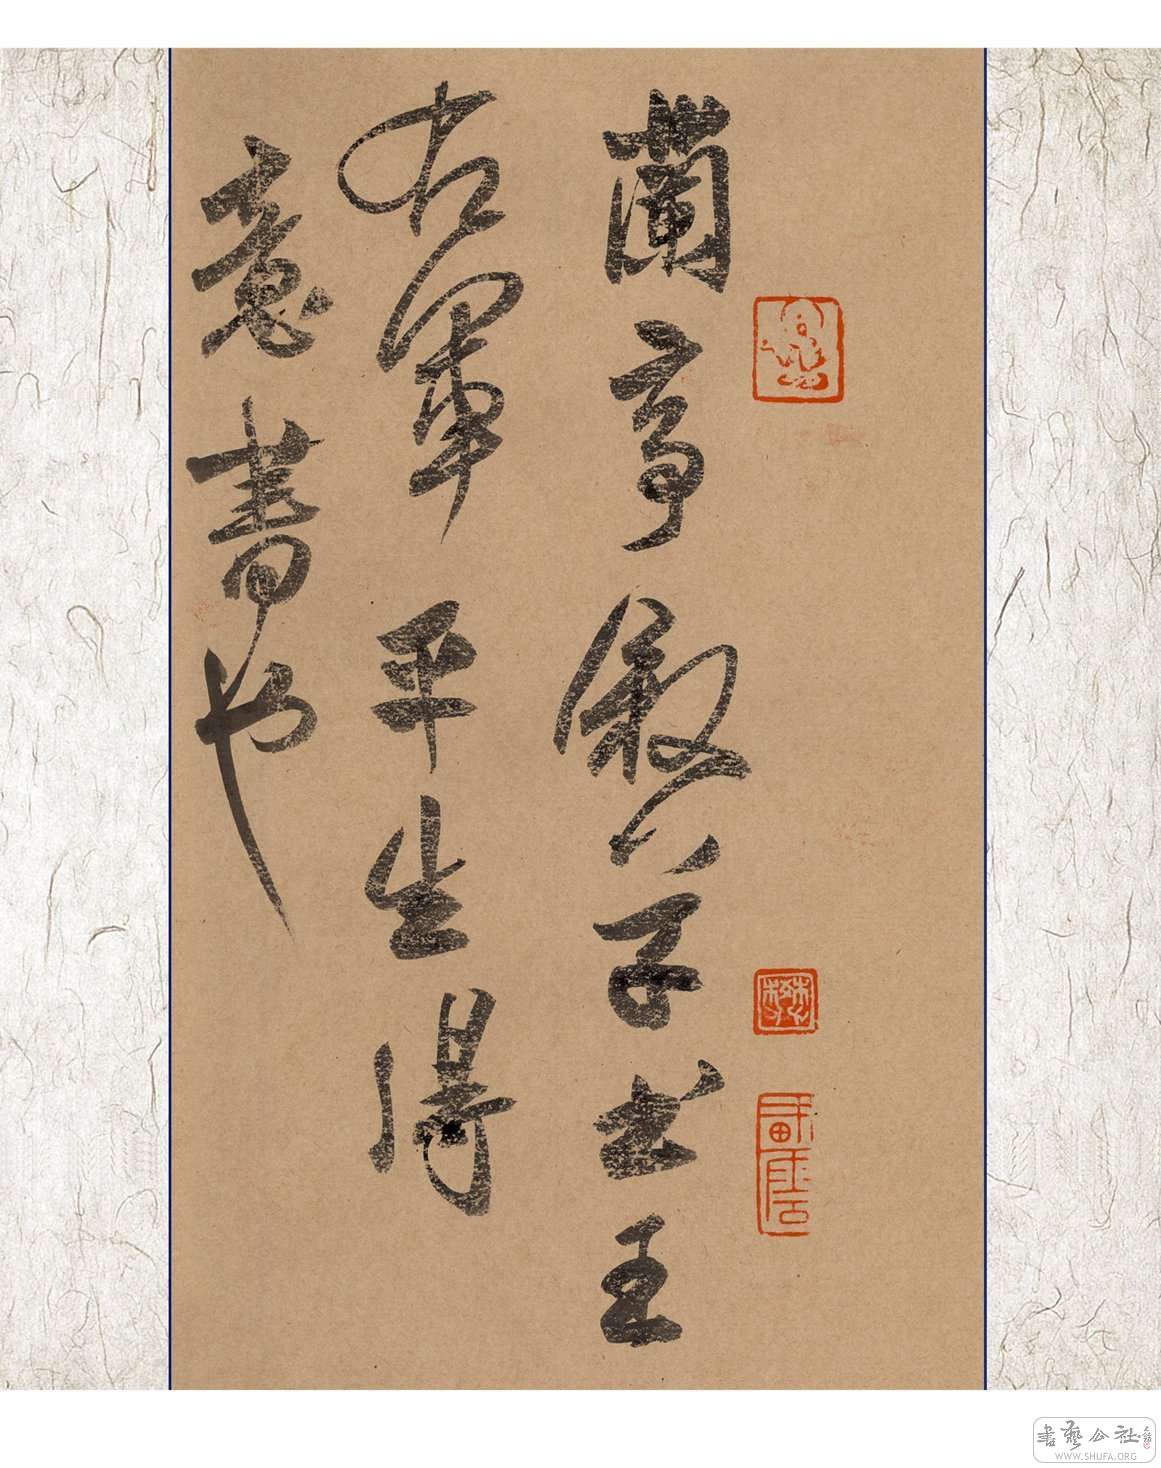 蘭亭敘草书王
右軍平生得
意書也
書藝公社
WWW.SHUFA.ORG